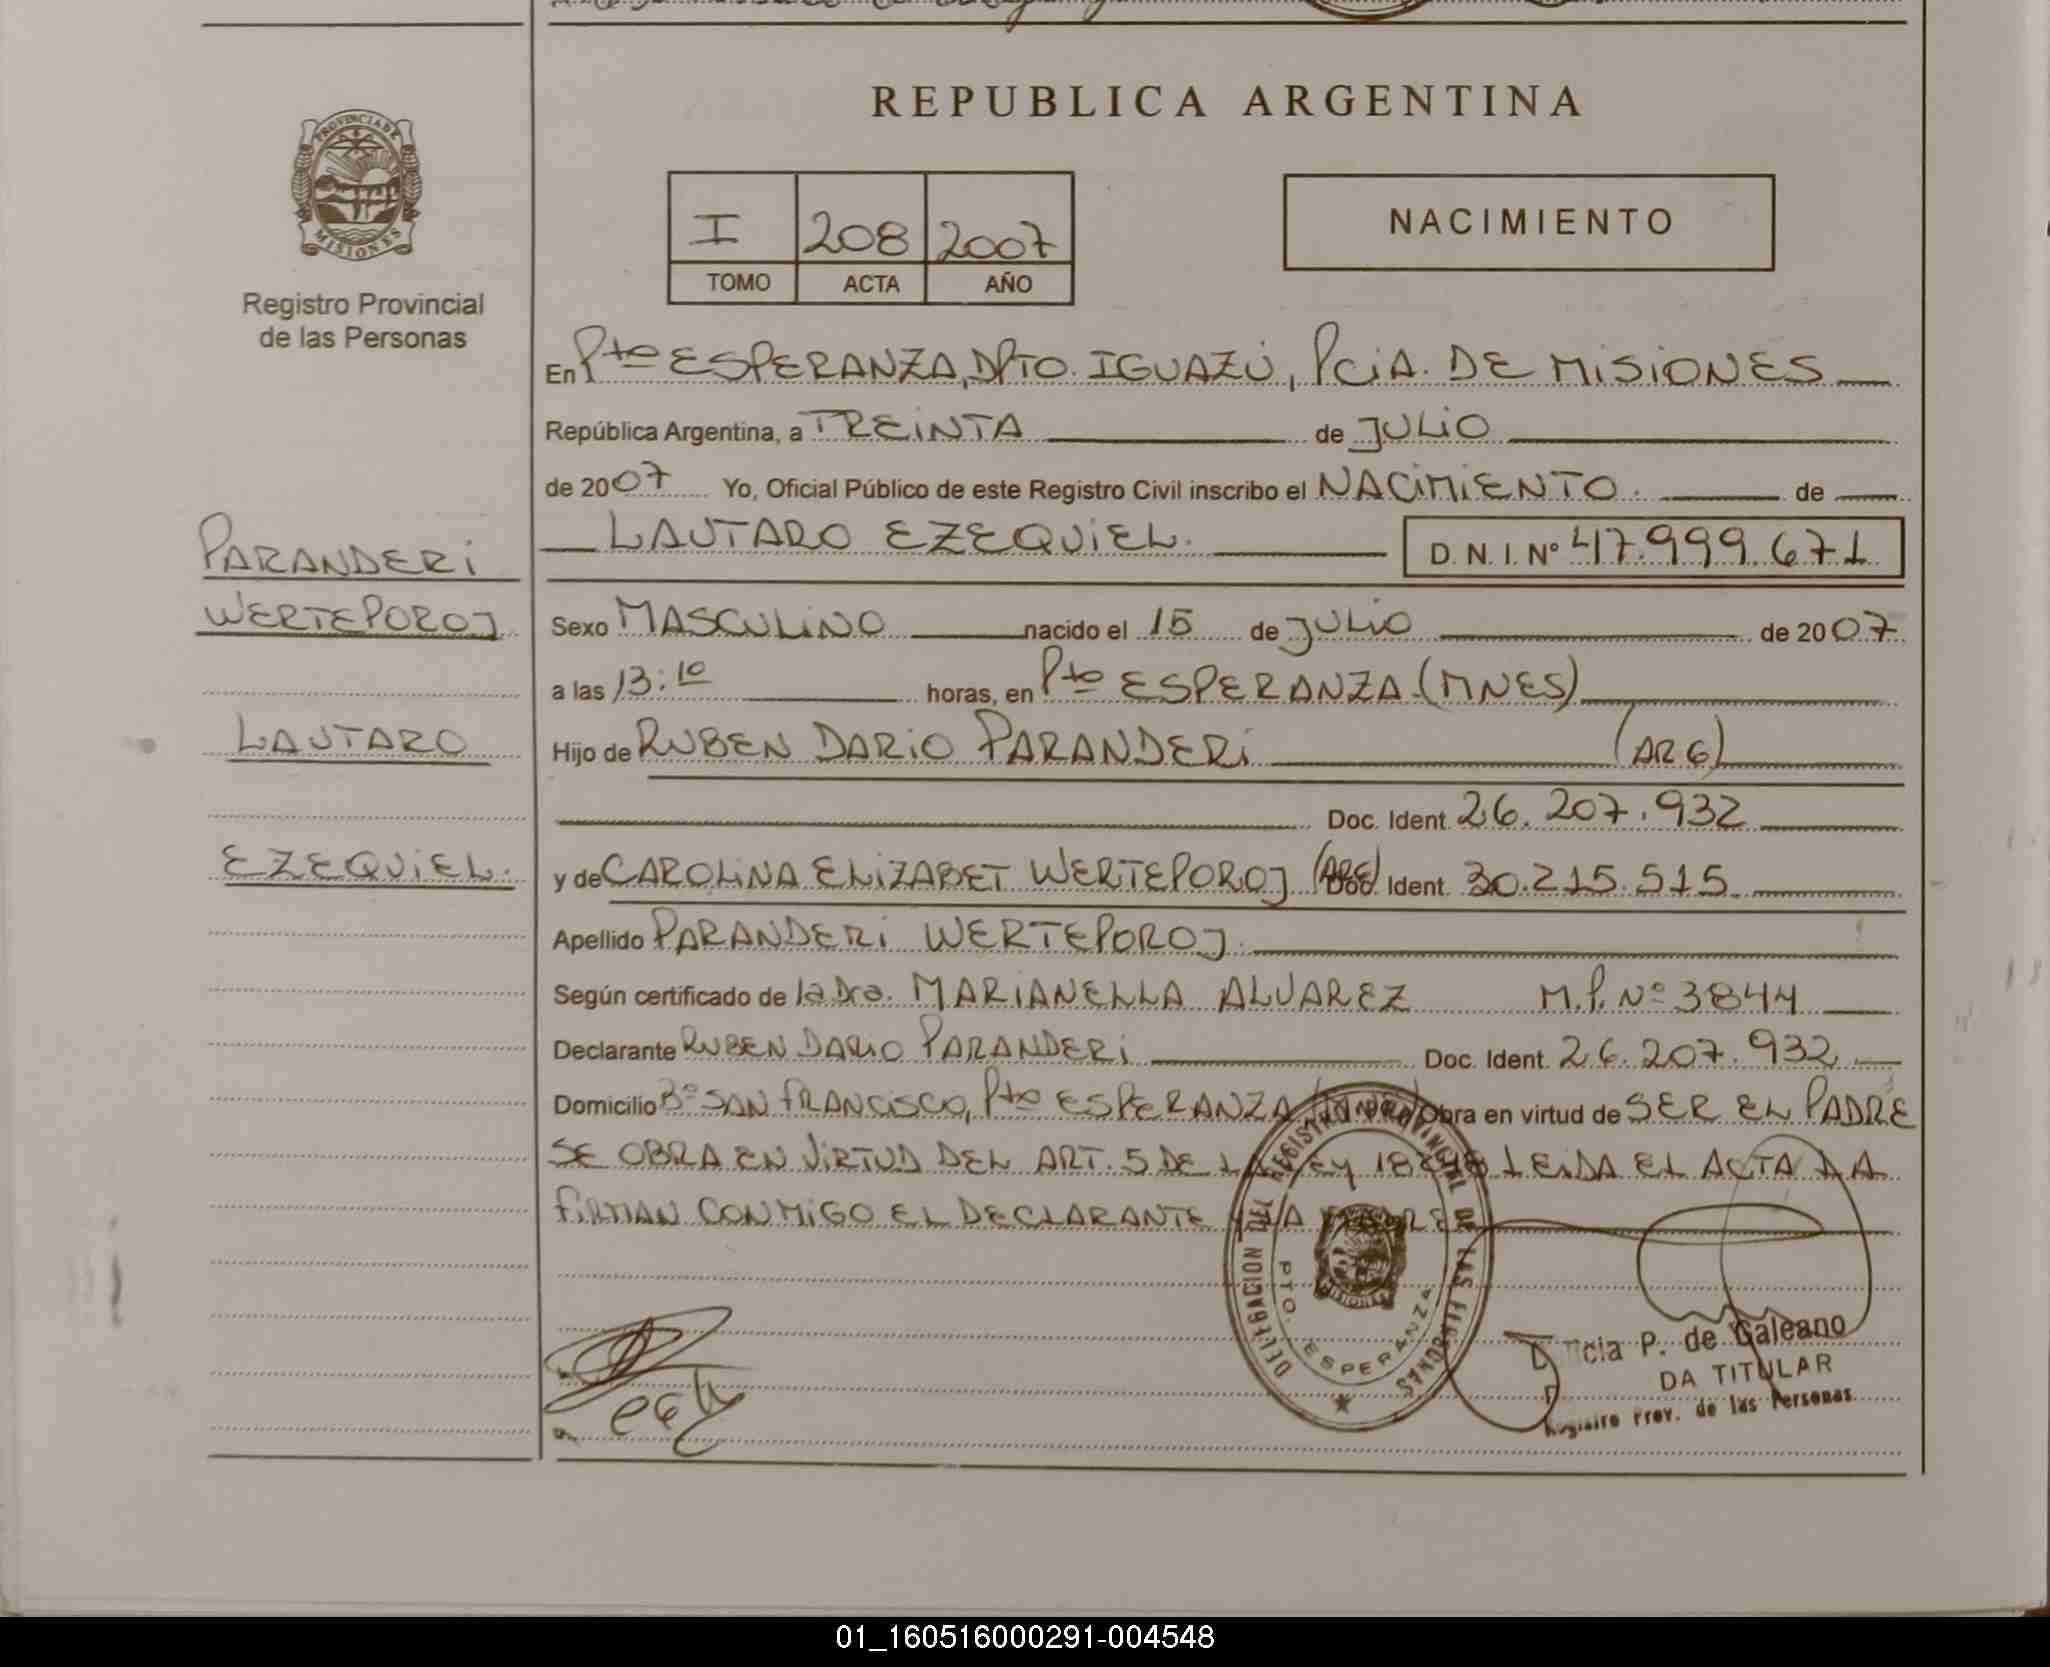 REPUBLICA ARGENTINA
PROVINCIA DE
MISIONES
Registro Provincial
de las Personas
I 208 2007
TOMO ACTA AÑO
NACIMIENTO
En Pto ESPERANZA, DPTO. IGUAZÚ, PCiA. DE MiSiONES
República Argentina, a TREiNTA de JULiO
de 2007 Yo, Oficial Público de este Registro Civil inscribo el NACiMiENTO. de
LAUTARO EZEQUiEL. D. N. I. Nº 47.999.671
PARANDERi
WERTEPOROJ
LAUTARO
EZEQUiEL.
Sexo MASCULiNO nacido el 15 de JULiO de 2007
a las 13:10 horas, en Pto ESPERANZA.(MNES)
Hijo de RUBEN DARiO PARANDERi (ARG)
Doc. Ident. 26.207.932
y de CAROLiNA ELiZABET WERTEPOROJ (ARG) Doc. Ident. 30.215.515.
Apellido PARANDERi WERTEPOROJ.
Según certificado de la Dra. MARiANELLA ALVAREZ M.P. Nº 3844
Declarante RUBEN DARiO PARANDERi Doc. Ident. 26.207.932
Domicilio Bº SAN FRANCiSCO, Pto ESPERANZA Obra en virtud de SER EL PADRE
SE OBRA EN ViRTUD DEL ART. 5 DE LA LEY LEiDA EL ACTA LA
FiRMAN CONMiGO EL DECLARANTE Y LA MADRE
DELEGACION DEL REGISTRO PROVINCIAL DE LAS PERSONAS
PTO. ESPERANZA
MISIONES
P. de Galeano
DA TITULAR
Registro Prov. de las Personas
01_160516000291-004548